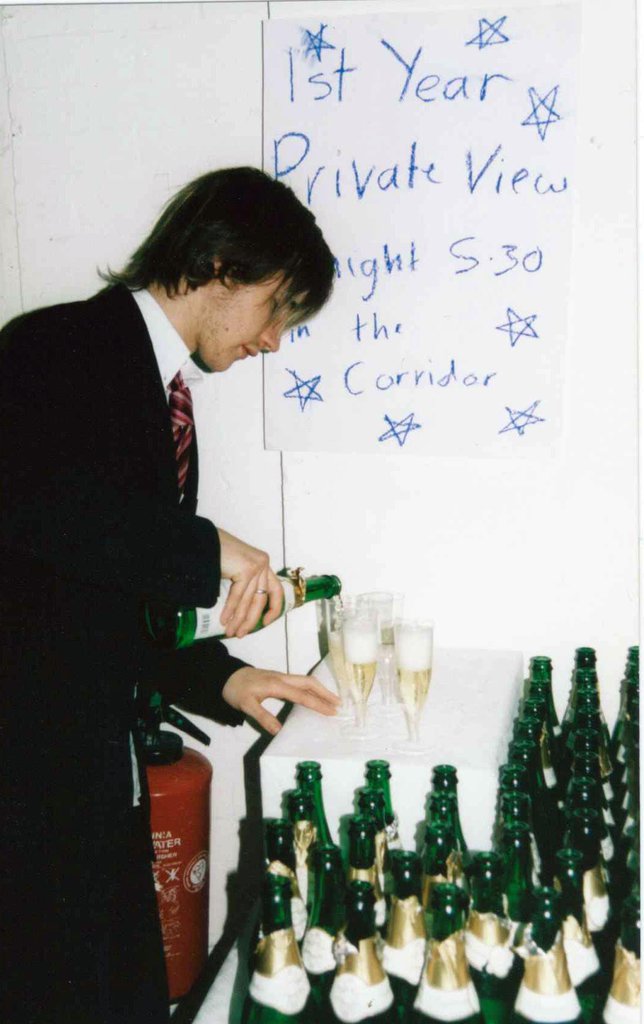 1st Year
Private View
night 5.30
in the
Corridor
WATER